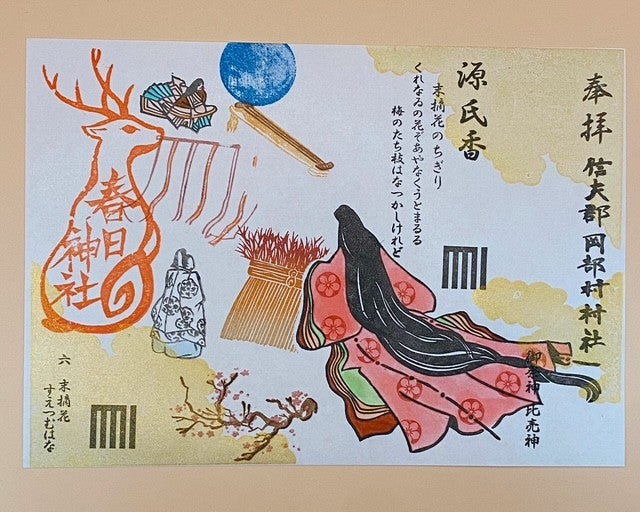 奉拝
信夫郡岡部村村社
御祭神 比売神
源氏香
末摘花のちぎり
くれなゐの花ぞあやなくうとまるる
梅のたち枝はなつかしけれど
春日
神社
六 末摘花
すえつむはな